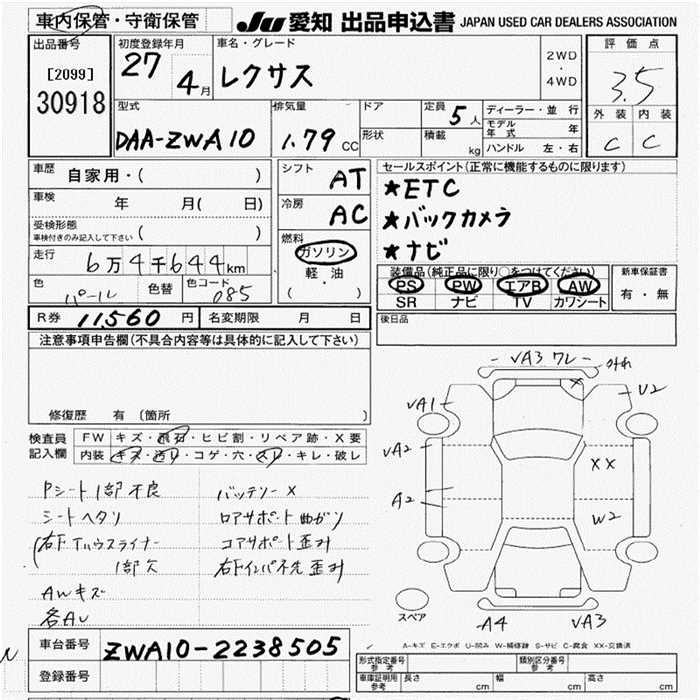 車内保管・守衛保管
JU 愛知 出品申込書 JAPAN USED CAR DEALERS ASSOCIATION
出品番号
[2099]
30918
初度登録年月
27 4月
車名・グレード
レクサス
2WD
・
4WD
評価点
3.5
外装 内装
C C
型式
DAA-ZWA10
排気量
1.79 CC
ドア
形状
定員 5人
積載 kg
ディーラー・並行
モデル年式 年
ハンドル 左・右
車歴 自家用・( )
車検 年 月( 日)
受検形態
車検付きのみ記入して下さい ( )
走行 6万4千644km
色 パール 色替 色コード 085
シフト AT
冷房 AC
燃料
ガソリン
軽油
( ・ )
セールスポイント(正常に機能するものに限ります)
★ETC
★バックカメラ
★ナビ
装備品(純正品に限り○をつけてください)
PS PW エアB AW
SR ナビ TV カワシート
新車保証書
有・無
後日品
R券 11,560 円 名変期限 月 日
注意事項申告欄(不具合内容等は具体的に記入して下さい)
修復歴 有 (箇所 )
検査員記入欄
FW キズ・飛石・ヒビ割・リペア跡・X要
内装 キズ・汚レ・コゲ・穴・スレ・キレ・破レ
Pシート1部不良
シートヘタリ
右下Fハウスライナー
1部欠
AWキズ
各AU
バッテリーX
ロアサポート曲がり
コアサポート歪み
右下インパ不先歪み
VA3 ワレ
VA1
U2
VA2
XX
A2
W2
A4
VA3
スペア
A-キズ E-エクボ U-凹み W-補修跡 S-サビ C-腐食 XX-交換済
車台番号 ZWA10-2238505
登録番号
形式指定番号 参考
類別区分番号 参考
車庫証明用 参考 長さ cm 幅 cm 高さ cm